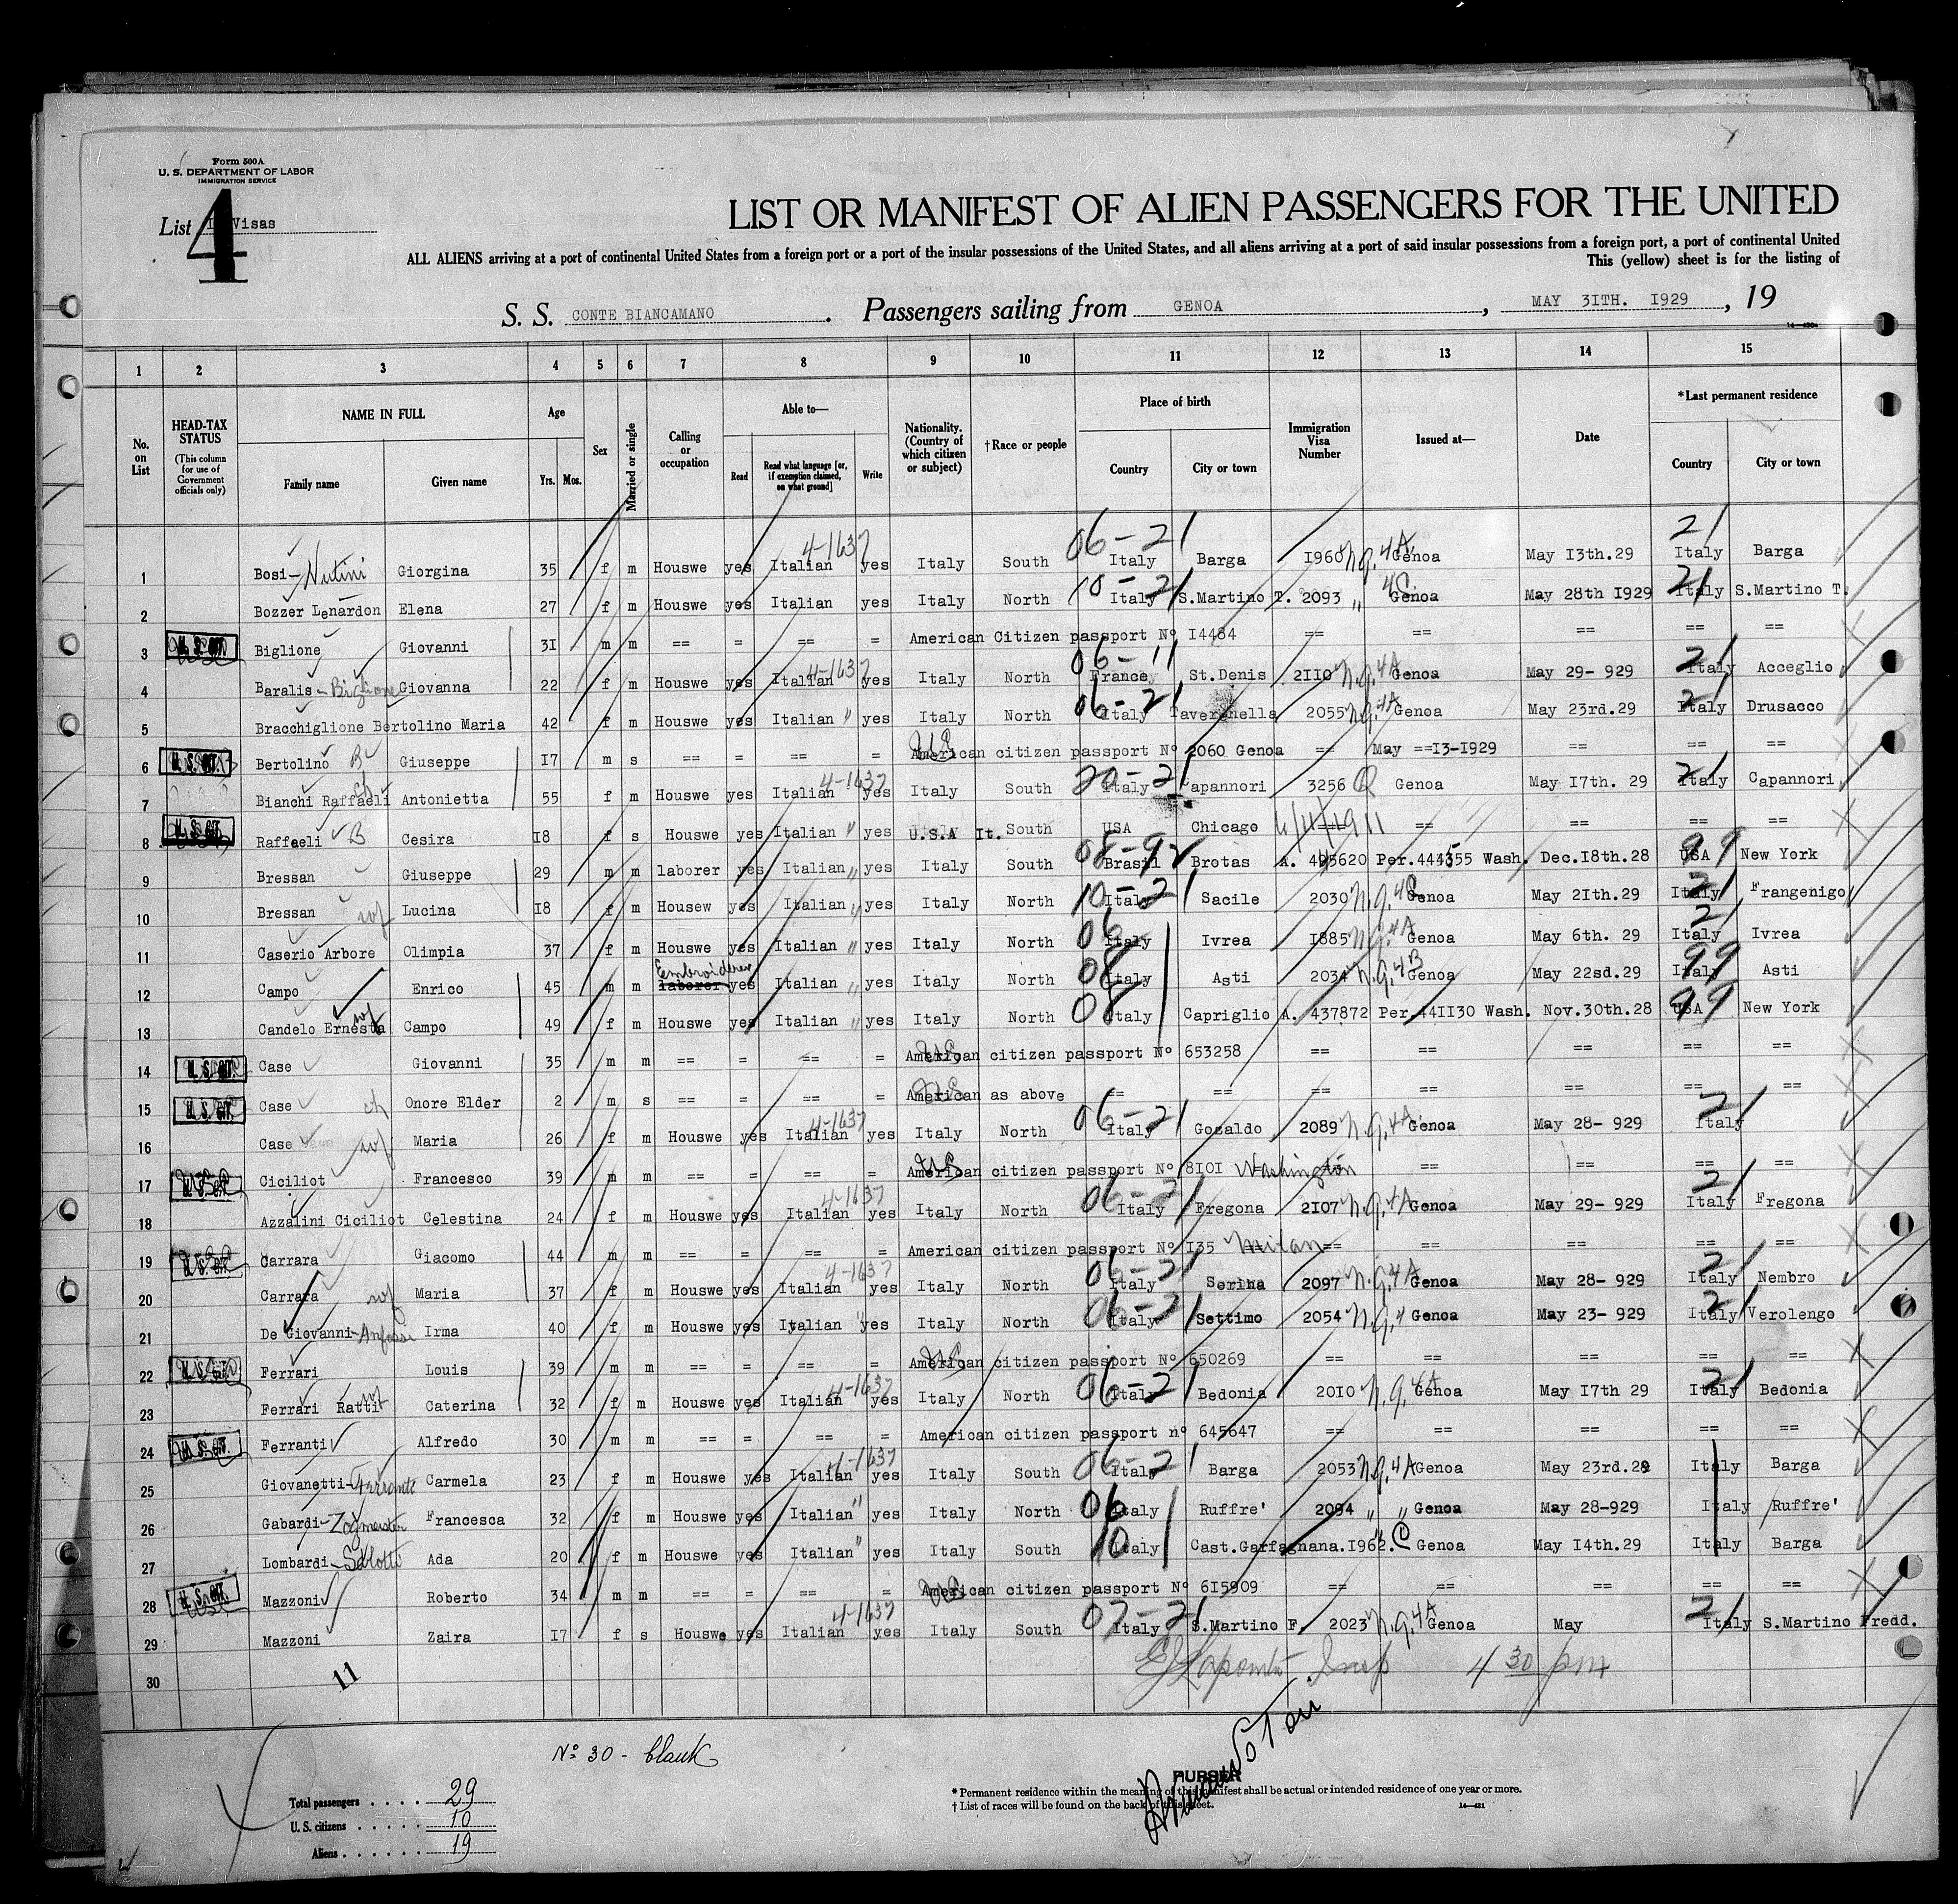 Form 500A
U. S. DEPARTMENT OF LABOR
IMMIGRATION SERVICE
4
List Visas
LIST OR MANIFEST OF ALIEN PASSENGERS FOR THE UNITED
ALL ALIENS arriving at a port of continental United States from a foreign port or a port of the insular possessions of the United States, and all aliens arriving at a port of said insular possessions from a foreign port, a port of continental United
This (yellow) sheet is for the listing of
S. S. CONTE BIANCAMANO. Passengers sailing from GENOA, MAY 3ITH. I929, 19
1 2 3 4 5 6 7 8 9 10 11 12 13 14 15
No. on List
HEAD-TAX STATUS (This column for use of Government officials only)
NAME IN FULL Family name Given name
Age Yrs. Mos.
Sex
Married or single
Calling or occupation
Able to— Read Read what language [or, if exemption claimed, on what ground] Write
Nationality. (Country of which citizen or subject)
†Race or people
Place of birth Country City or town
Immigration Visa Number
Issued at—
Date
*Last permanent residence Country City or town
1 Bosi-Nutini Giorgina 35 f m Houswe yes Italian 4-1637 yes Italy South 06-21 Italy Barga I960 n.q.4A Genoa May I3th.29 21 Italy Barga
2 Bozzer Lenardon Elena 27 f m Houswe yes Italian yes Italy North 10-21 Italy S.Martino T. 2093 " 4C Genoa May 28th I929 21 Italy S.Martino T.
3 U. S. CIT. Biglione Giovanni 3I m m == = == = American Citizen passport Nº I4484 == == == == ==
4 Baralis-Biglione Giovanna 22 f m Houswe yes Italian 4-1637 yes Italy North 06-11 France St.Denis 2II0 n.q.4A Genoa May 29- 929 21 Italy Acceglio
5 Bracchiglione Bertolino Maria 42 f m Houswe yes Italian " yes Italy North 06-21 Italy Taveranella 2055 n.q.4A Genoa May 23rd.29 21 Italy Drusacco
6 U. S. CIT. Bertolino B Giuseppe I7 m s == = == = American citizen passport Nº 2060 Genoa == May ==I3-I929 == == ==
7 Bianchi Raffaeli Antonietta 55 f m Houswe yes Italian 4-1637 yes Italy South 20-21 Italy Capannori 3256 Q Genoa May I7th. 29 21 Italy Capannori
8 U. S. CIT. Raffaeli B Cesira I8 f s Houswe yes Italian " yes U.S.A It. South USA Chicago == == == ==
9 Bressan Giuseppe 29 m m laborer yes Italian " yes Italy South 08-92 Brasil Brotas A. 495620 Per.444355 Wash. Dec.I8th.28 99 USA New York
10 Bressan wf Lucina I8 f m Housew yes Italian " yes Italy North 10-21 Italy Sacile 2030 n.q.4C Genoa May 2Ith.29 21 Italy Frangenigo
11 Caserio Arbore Olimpia 37 f m Houswe yes Italian " yes Italy North 06 Italy Ivrea I885 n.q.4A Genoa May 6th. 29 21 Italy Ivrea
12 Campo Enrico 45 m m Embroiderer laborer yes Italian " yes Italy North 08 Italy Asti 2034 n.q.4B Genoa May 22sd.29 99 Italy Asti
13 Candelo Ernesta wf Campo 49 f m Houswe yes Italian " yes Italy North 08 Italy Capriglio A. 437872 Per.44II30 Wash. Nov.30th.28 99 USA New York
14 U. S. CIT. Case Giovanni 35 m m == = == = American citizen passport Nº 653258 == == == == ==
15 U. S. CIT. Case ch Onore Elder 2 m s == = == = American as above == == == == == == ==
16 Case wf Maria 26 f m Houswe yes Italian 4-1637 yes Italy North 06-21 Italy Gosaldo 2089 n.q.4A Genoa May 28- 929 21 Italy
17 U. S. CIT. Ciciliot Francesco 39 m m == = == = American citizen passport Nº 8I0I Washington == == == ==
18 Azzalini Ciciliot Celestina 24 f m Houswe yes Italian 4-1637 yes Italy North 06-21 Italy Fregona 2I07 n.q.4A Genoa May 29- 929 21 Italy Fregona
19 U. S. CIT. Carrara Giacomo 44 m m == = == = American citizen passport Nº I35 Milan == == == == ==
20 Carrara wf Maria 37 f m Houswe yes Italian 4-1637 yes Italy North 06-21 Italy Serina 2097 n.q.4A Genoa May 28- 929 21 Italy Nembro
21 De Giovanni-Anfossi Irma 40 f m Houswe yes Italian " yes Italy North 06-21 Italy Settimo 2054 n.q.4 Genoa May 23- 929 21 Italy Verolengo
22 U. S. CIT. Ferrari Louis 39 m m == = == = American citizen passport Nº 650269 == == == == ==
23 Ferrari Ratti wf Caterina 32 f m Houswe yes Italian 4-1637 yes Italy North 06-21 Italy Bedonia 20I0 n.q.4A Genoa May I7th 29 21 Italy Bedonia
24 U. S. CIT. Ferranti Alfredo 30 m m == = == = American citizen passport nº 645647 == == == == ==
25 Giovanetti-Ferrante Carmela 23 f m Houswe yes Italian 4-1637 yes Italy South 06-21 Italy Barga 2053 n.q.4A Genoa May 23rd.29 Italy Barga
26 Gabardi-Zogmeister Francesca 32 f m Houswe yes Italian " yes Italy North 06 Italy Ruffre' 2094 " " Genoa May 28-929 Italy Ruffre'
27 Lombardi-Salotti Ada 20 f m Houswe yes Italian " yes Italy South 10 Italy Cast.Garfagnana.I962. C Genoa May I4th.29 Italy Barga
28 U. S. CIT. Mazzoni Roberto 34 m m == = == = American citizen passport Nº 6I5909 == == == == ==
29 Mazzoni Zaira I7 f s Houswe yes Italian 4-1637 yes Italy South 07-21 Italy S.Martino F. 2023 n.q.4A Genoa May 21 Italy S.Martino Fredd.
30 11 Insp 4 30 pm
Nº 30 - blank
PURSER
Total passengers . . . . 29
U. S. citizens . . . . . 10
Aliens . . . . . . 19
* Permanent residence within the meaning of this manifest shall be actual or intended residence of one year or more.
† List of races will be found on the back of this sheet.